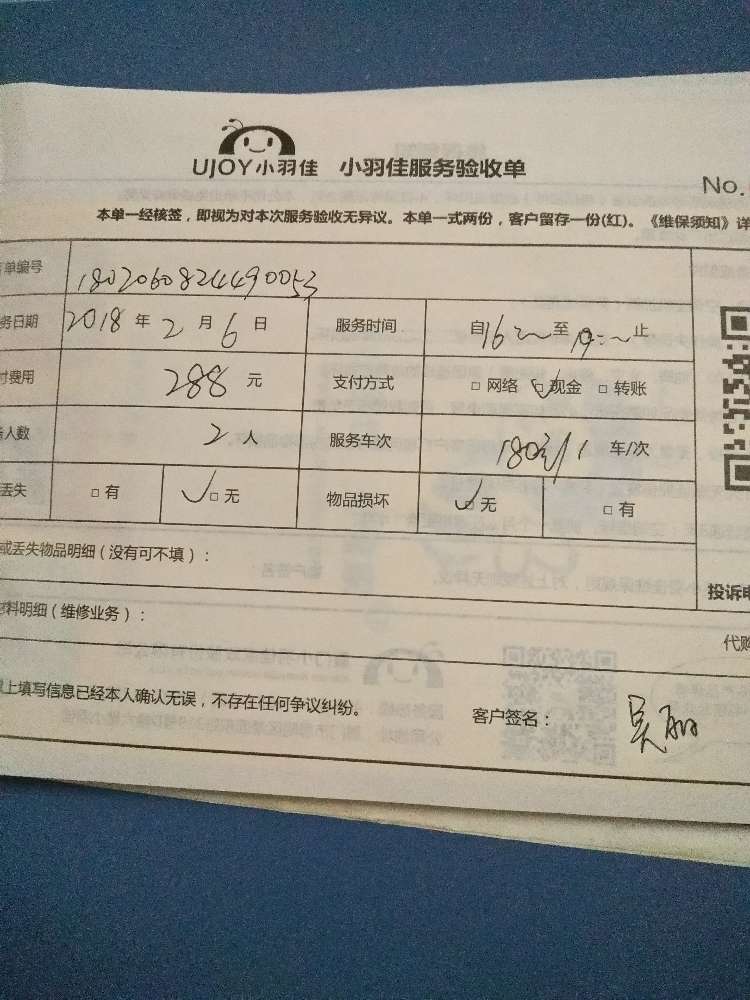 UJOY小羽佳 小羽佳服务验收单
No.
本单一经核签，即视为对本次服务验收无异议。本单一式两份，客户留存一份(红)。《维保须知》详
单编号 1802060824490053
务日期 2018 年 2 月 6 日 服务时间 自16:~至19:~止
付费用 288 元 支付方式 □ 网络 ☑ 现金 □ 转账
人数 2 人 服务车次 180元/1 车/次
丢失 □ 有 ✓□ 无 物品损坏 ✓□ 无 □ 有
或丢失物品明细（没有可不填）：
投诉电
材料明细（维修业务）：
代购
以上填写信息已经本人确认无误，不存在任何争议纠纷。 客户签名： 吴丽